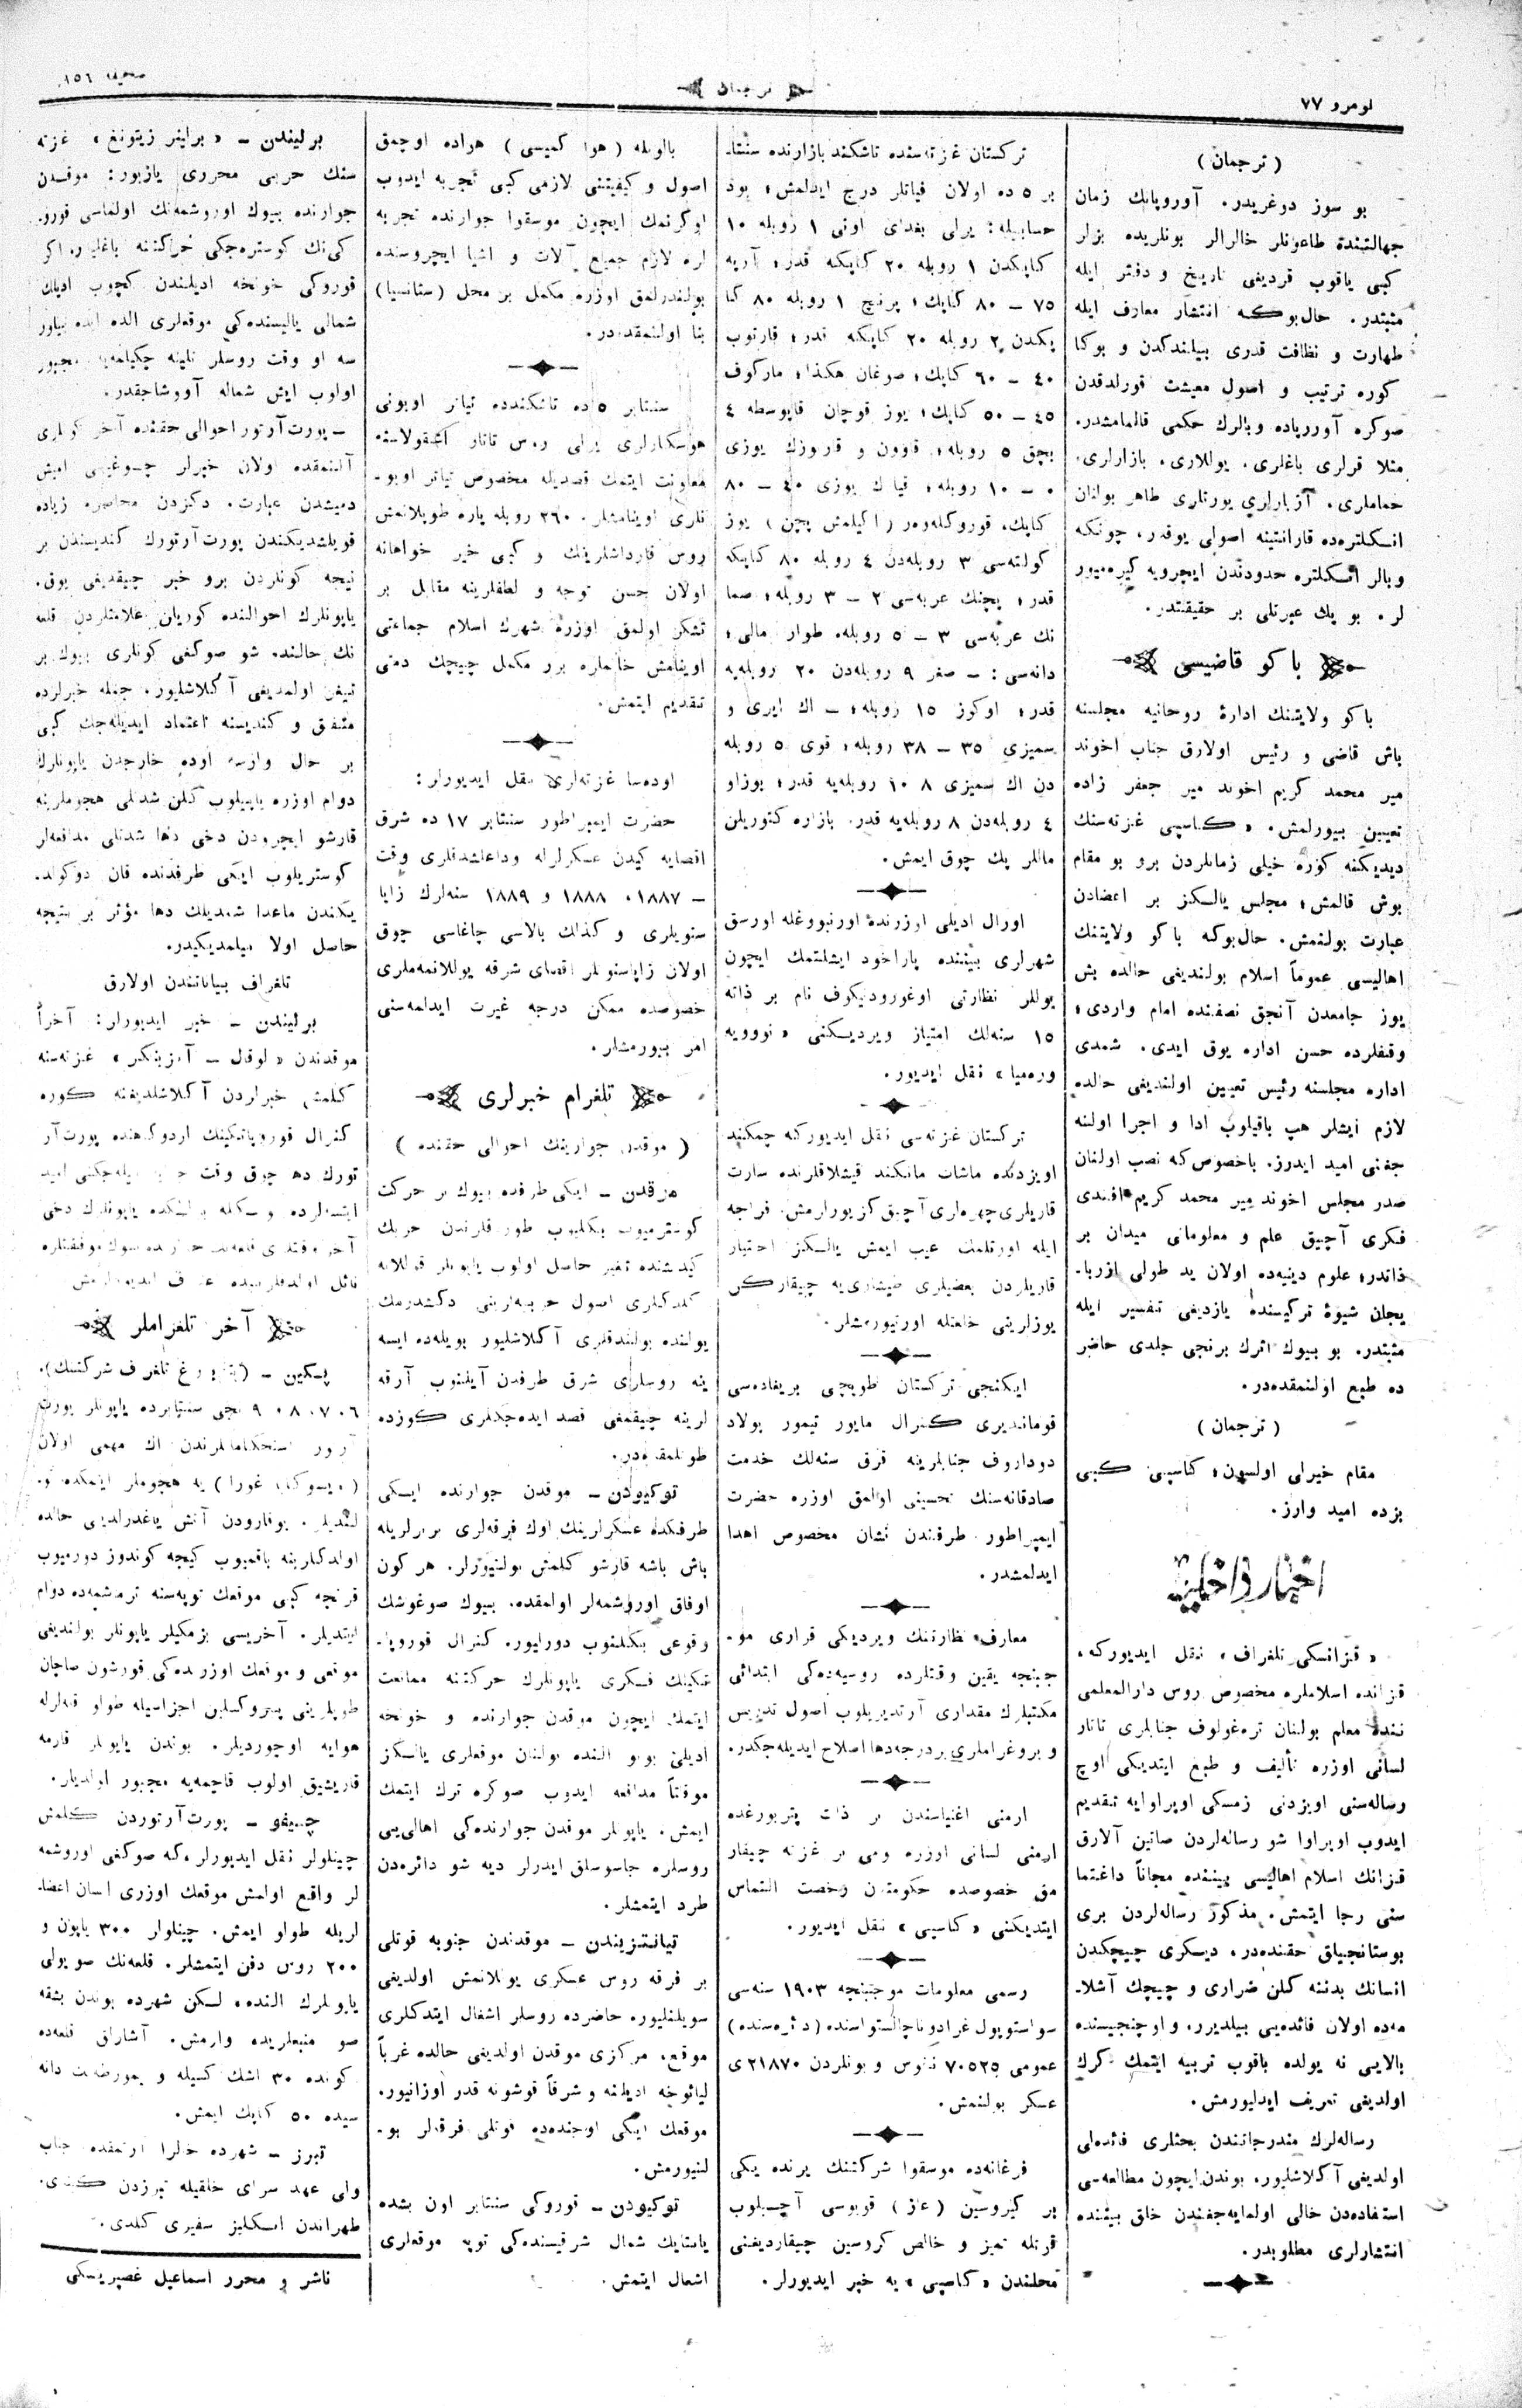 نومرو ٧٧
ترجمان
صحيفه ١٥٦
( ترجمان )
بو سوز دوغريدر. آوروپانك زمان
جهالتنده طاعونلر خالرالر بونلريده بزلر
كبى ياقوب قرديغى تاريخ و دفتر ايله
مثبتدر. حال‌بوكه انتشار معارف ايله
طهارت و نظافت قدرى بيلندكدن و بوكا
كوره ترتيب و اصول معيشت قورلدقدن
صوكره آوروپاده وبالرك حكمى قالمامشدر.
مثلا قرلرى باغلرى، يوللارى، بازارلرى،
حماملرى، آزبارلرى يورتلرى طاهر بولنان
انكلتره‌ده قارانتينه اصولى يوقدر، چونكه
وبالر انكلتره حدودندن ايچرويه كيره‌ميور
لر. بو پك عبرتلى بر حقيقتدر.
باكو قاضيسى
باكو ولايتنك ادارهٔ روحانيه مجلسنه
باش قاضى و رئيس اولارق جناب اخوند
مير محمد كريم اخوند مير جعفر زاده
تعيين بيورلمش. «كاسپى غزته‌سنك
ديديكنه كوره خيلى زمانلردن برو بو مقام
بوش قالمش؛ مجلس يالكز بر اعضادن
عبارت بولنمش. حال‌بوكه باكو ولايتنك
اهاليسى عموماً اسلام بولنديغى حالده بش
يوز جامعدن آنجق نصفنده امام واردى؛
وقفلرده حسن اداره يوق ايدى. شمدى
اداره مجلسنه رئيس تعيين اولنديغى حالده
لازم ايشلر هپ باقيلوب ادا و اجرا اولنه
جغنى اميد ايدرز. باخصوص كه نصب اولنان
صدر مجلس اخوند مير محمد كريم افندى
فكرى آچيق علم و معلوماتى ميدان بر
ذاتدر؛ علوم دينيه‌ده اولان يد طولى ازربا-
يجان شيوهٔ تركيسنده يازديغى تفسير ايله
مثبتدر. بو بيوك اثرك برنجى جلدى حاضر
ده طبع اولنمقده‌در.
( ترجمان )
مقام خيرلى اولسون؛ كاسپى كبى
بزده اميد وارز.
اخبار داخليه
«قزانسكى تلغراف» نقل ايديوركه،
قزانده اسلاملره مخصوص روس دارالمعلمى
ننده معلم بولنان تره‌غولوف جنابلرى تاتار
لسانى اوزره تأليف و طبع ايتديكى اوچ
رساله‌سنى اويزدنى زمسكى اوپراوايه تقديم
ايدوب اوپراوا شو رساله‌لردن صاتين آلارق
قزانك اسلام اهاليسى بيننده مجاناً داغتما
سنى رجا ايتمش. مذكور رساله‌لردن برى
بوستانجيلق حقنده‌در، ديكرى چيچكدن
انسانك بدننه كلن ضرارى و چيچك آشلا-
مه‌ده اولان فائده‌يى بيلديرر، و اوچنجيسنده
بالايى نه يولده باقوب تربيه ايتمك كرك
اولديغى تعريف ايدليورمش.
رساله‌لرك مندرجاتندن بحثلرى فائده‌لى
اولديغى آكلاشليور، بوندن ايچون مطالعه‌سى
استفاده‌دن خالى اولمايه‌جغندن خلق بيننده
انتشارلرى مطلوبدر.
تركستان غزته‌سنده تاشكند بازارنده سنتا-
بر ٥ ده اولان قياتلر درج ايدلمش؛ پود
حسابيله: يرلى بغداى اونى ١ روبله ١٠
كاپكدن ١ روبله ٢٠ كاپكه قدر؛ آرپه
٧٥ – ٨٠ كاپك؛ پرنچ ١ روبله ٨٠ كا
پكدن ٢ روبله ٢٠ كاپكه قدر؛ قارتوب
٤٠ – ٦٠ كاپك؛ صوغان هكذا؛ ماركوف
٤٥ – ٥٠ كاپك؛ يوز قوچان قاپوسطه ٤
بچق ٥ روبله؛ قاوون و قارپوزك يوزى
– ١٠ روبله؛ يوزى ٤٠ – ٨٠
كاپك، قوروكله‌ور (اكيلمش پچن) يوز
كولته‌سى ٣ روبله‌دن ٤ روبله ٨٠ كاپكه
قدر؛ پچنك عربه‌سى ٢ – ٣ روبله؛ صما
نك عربه‌سى ٣ – ٥ روبله. طوار مالى؛
دانه‌سى: – صغر ٩ روبله‌دن ٢٠ روبله‌يه
قدر؛ اوكوز ١٥ روبله؛ – اك ايرى و
سميزى ٣٥ – ٣٨ روبله؛ قوى ٥ روبله
دن اك سميزى ٨ ١٠ روبله‌يه قدر؛ بوزاو
٤ روبله‌دن ٨ روبله‌يه قدر. بازاره كتوريلن
ماللر پك چوق ايمش.
اورال اديلى اوزرندهٔ اورنبووغله اورسق
شهرلرى بيننده پاراخود ايشلتمك ايچون
يوللر نظارتى اوغورودنيكوف نام بر ذاته
١٥ سنه‌لك امتياز ويرديكنى «نوويه
وره‌ميا» نقل ايديور.
تركستان غزته‌سى نقل ايديوركه چمكند
اويزدنده ماشات مانكند قيشلاقلرنده سارت
قاريلرى چهره‌لرى آچيق كزيورلرمش. فراجه
ايله اورتلمك عيب ايمش يالكز اختيار
قاريلردن بعضيلرى طيشارى‌يه چيقاركن
يوزلرينى خلعتله اورتيورمشلر.
ايكنجى تركستان طوپچى بريغاده‌سى
قومانديرى كنرال مايور تيمور بولاد
دوداروف جنابلرينه قرق سنه‌لك خدمت
صادقانه‌سنك تحسينى اولمق اوزره حضرت
ايمپراطور طرفندن نشان مخصوص اهدا
ايدلمشدر.
معارف نظارتنك ويرديكى قرارى مو-
جبنجه يقين وقتلرده روسيه‌ده‌كى ابتدائى
مكتبلرك مقدارى آرتديريلوب اصول تدريس
و پروغراملرى بر درجه‌دها اصلاح ايديله‌جكدر.
ارمنى اغنياسندن بر ذات پتربورغده
ارمنى لسانى اوزره يومى بر غزته چيقار
مق خصوصده حكومتدن رخصت التماس
ايتديكنى «كاسپى» نقل ايديور.
رسمى معلومات موجبنجه ١٩٠٣ سنه‌سى
سواستوپول غرادوناچالستواسنده (دائره‌سنده)
عمومى ٧٠٥٢٥ نفوس و بونلردن ٢١٨٧٠ى
عسكر بولنمش.
فرغانه‌ده موسقوا شركتنك يرنده يكى
بر كيروسين (غاز) قويوسى آچيلوب
قرنله تميز و خالص كروسين چيقارديغنى
محلندن «كاسپى» يه خبر ايديورلر.
بالونله (هوا كميسى) هواده اوچمق
اصول و كيفيتنى لازمى كبى تجربه ايدوب
اوكرنمك ايچون موسقوا جوارنده تجربه
لره لازم جميع آلات و اشيا ايچروسنده
بولندرلمق اوزره مكمل بر محل (ستانسيا)
بنا اولنمقده‌در.
سنتابر ٥ ده تاشكندده تياتر اويونى
هوسكارلرى يرلى روس تاتار اشقولاسنه
معاونت ايتمك قصديله مخصوص تياتر اويو-
نلرى اوينامشلر. ٢٦٠ روبله پاره طوپلانمش
روس قارداشلرينك و كبى خير خواهانه
اولان حسن توجه و لطفلرينه مقابل بر
تشكر اولمق اوزره شهرك اسلام جماعتى
اوينامش خانملره برر مكمل چيچك دمتى
تقديم ايتمش.
اوده‌سا غزته‌لرى نقل ايديورلر:
حضرت ايمپراطور سنتابر ١٧ ده شرق
اقصايه كيدن عسكرلرله وداعلشدقلرى وقت
– ١٨٨٧، ١٨٨٨ و ١٨٨٩ سنه‌لرك زاپا
سنويلرى و كذلك بالاسى چاغاسى چوق
اولان زاپاسنويلر اقصاى شرقه يوللانمه‌ملرى
خصوصده ممكن درجه غيرت ايدلمه‌سنى
امر بيورمشلر.
تلغرام خبرلرى
( موقدن جوارينك احوالى حقنده )
موقدن – ايكى طرفده بيوك بر حركت
كوسترميوب بكليوب طورقلرندن حربك
كيدشنده تغير حاصل اولوب ياپونلر قوللانه
كلدكلرى اصول حربيه‌لرينى دكشدرمك
يولنده بولندقلرى آكلاشليور بويله‌ده ايسه
ينه روسلرى شرق طرفدن آيلنوب آرقه
لرينه چيقمغى قصد ايده‌جكلرى كوزده
طوتلمقده‌در.
توكيودن – موقدن جوارنده ايكى
طرفكده عسكرلرينك اوك فرقه‌لرى بربرلريله
باش باشه قارشو كلمش بولنيورلر. هر كون
اوفاق اوروشمه‌لر اولمقده. بيوك صوغوشك
وقوعى بكلنوب دوريور. كنرال قوروپا-
تكينك فكرى ياپونلرك حركتنه ممانعت
ايتمك ايچون موقدن جوارنده و خونخه
اديلى بويو النده بولنان موقعلرى يالكز
موقتاً مدافعه ايدوب صوكره ترك ايتمك
ايمش. ياپونلر موقدن جوارنده‌كى اهالى‌يى
روسلره جاسوسلق ايدرلر ديه شو دائره‌دن
طرد ايتمشلر.
تيانتزيندن – موقدندن جنوبه قوتلى
بر فرقه روس عسكرى يوللانمش اولديغى
سويلنليور، حاضرده روسلر اشغال ايتدكلرى
موقع، مركزى موقدن اولديغى حالده غرباً
لياوخه اديلنه و شرقاً قوشونه قدر اوزانيور.
موقعك ايكى اوجنده‌ده قوتلى فرقه‌لر بو-
لنيورمش.
توكيودن – قوروكى سنتابر اون بشده
يانتايك شمال شرقيسنده‌كى توپه موقعلرى
اشغال ايتمش.
برليندن – «برلينر زيتونغ» غزته
سنك حربى محررى يازيور: موقدن
جوارنده بيوك اوروشمه‌نك اولماسى قورو-
كى‌نك كوستره‌جكى حركتنه باغليدر. اكر
قوروكى خونخه اديلندن كچوب اديلك
شمالى ياليسنده‌كى موقعلرى الده ايده بيلور
سه او وقت روسلر تلينه چكيلمه‌يه مجبور
اولوب ايش شماله آووشاجقدر.
– پورت‌آرتور احوالى حقنده آخر كونلرى
آلنمقده اولان خبرلر چوغيسى ايمش
دميشدن عبارت. دكزدن محاصره زياده
قويلشديكندن پورت‌آرتورك كنديسندن بر
نيجه كونلردن برو خبر چيقديغى يوق.
ياپونلرك احوالنده كوريان علامتلردن قلعه
نك حالنده شو صوكغى كونلرى بيوك بر
تيغن اولمديغى آكلاشليور. جمله خبرلرده
متفق و كنديسنه اعتماد ايديله‌جك كبى
بر حال وارسه اوده خارجدن ياپونلرك
دوام اوزره ياپيلوب كلن شدتلى هجوملرينه
قارشو ايچرودن دخى دها شدتلى مدافعه‌لر
كوستريلوب ايكى طرفدنده قان دوكولد-
يكندن ماعدا شمديلك دها مؤثر بر نتيجه
حاصل اولا بيلمديكيدر.
تلغراف بياناتندن اولارق
برليندن – خبر ايديورلر: آخراً
موقدندن «لوقال – آنزينكر» غزته‌سنه
كلمش خبرلردن آكلاشلديغنه كوره
كنرال قوروپاتكينك اردوكاهنده پورت‌آر
تورك دها چوق وقت
آخر تلغراملر
پكين – (تلغرف شركتنك).
٦ ٠ ٧ ٠ ٨ ٠ ٩ نجى سنتابرده ياپونلر پورت
آرتور استحكاملرندن اك مهمى اولان
(ويسوكايا غورا) يه هجوملر ايتمكده بو-
لنديلر. يوقارودن آتش ياغدرلديى حالده
اولدكلرينه باقميوب كيجه كوندوز دورميوب
قرنجه كبى موقعك توپه‌سنه ترمشمه‌ده دوام
ايتديلر. آخريسى بزمكيلر ياپونلر بولنديغى
موقعى و موقعك اوزرنده‌كى قورشون صاچان
طوپلرينى پيروكسلين اجزاسيله طولو قنبه‌لرله
هوايه اوچورديلر. بوندن ياپونلر قارمه
قاريشيق اولوب قاچمه‌يه مجبور اولديلر.
چيفو – پورت‌آرتوردن كلمش
چينلولر نقل ايديورلر، كه صوكغى اوروشمه
لر واقع اولمش موقعك اوزرى انسان اعضا-
لريله طولو ايمش. چينلولر ٣٠٠ ياپون و
٢٠٠ روس دفن ايتمشلر. قلعه‌نك صو يولى
ياپونلرك النده، لكن شهرده بوندن بشقه
صو منبعلريده وارمش. آشارلق قلعه‌ده
كونده ٣٠ اشك كسيله و يمورطه‌نك دانه
سيده ٥٠ كاپك ايمش.
تبرز – شهرده خالرا آرتمقده جناب
ولى عهد سراى خلقيله تبرزدن كيتدى.
طهراندن انكليز سفيرى كلدى.
ناشر و محرر اسماعيل غصپرينسكى